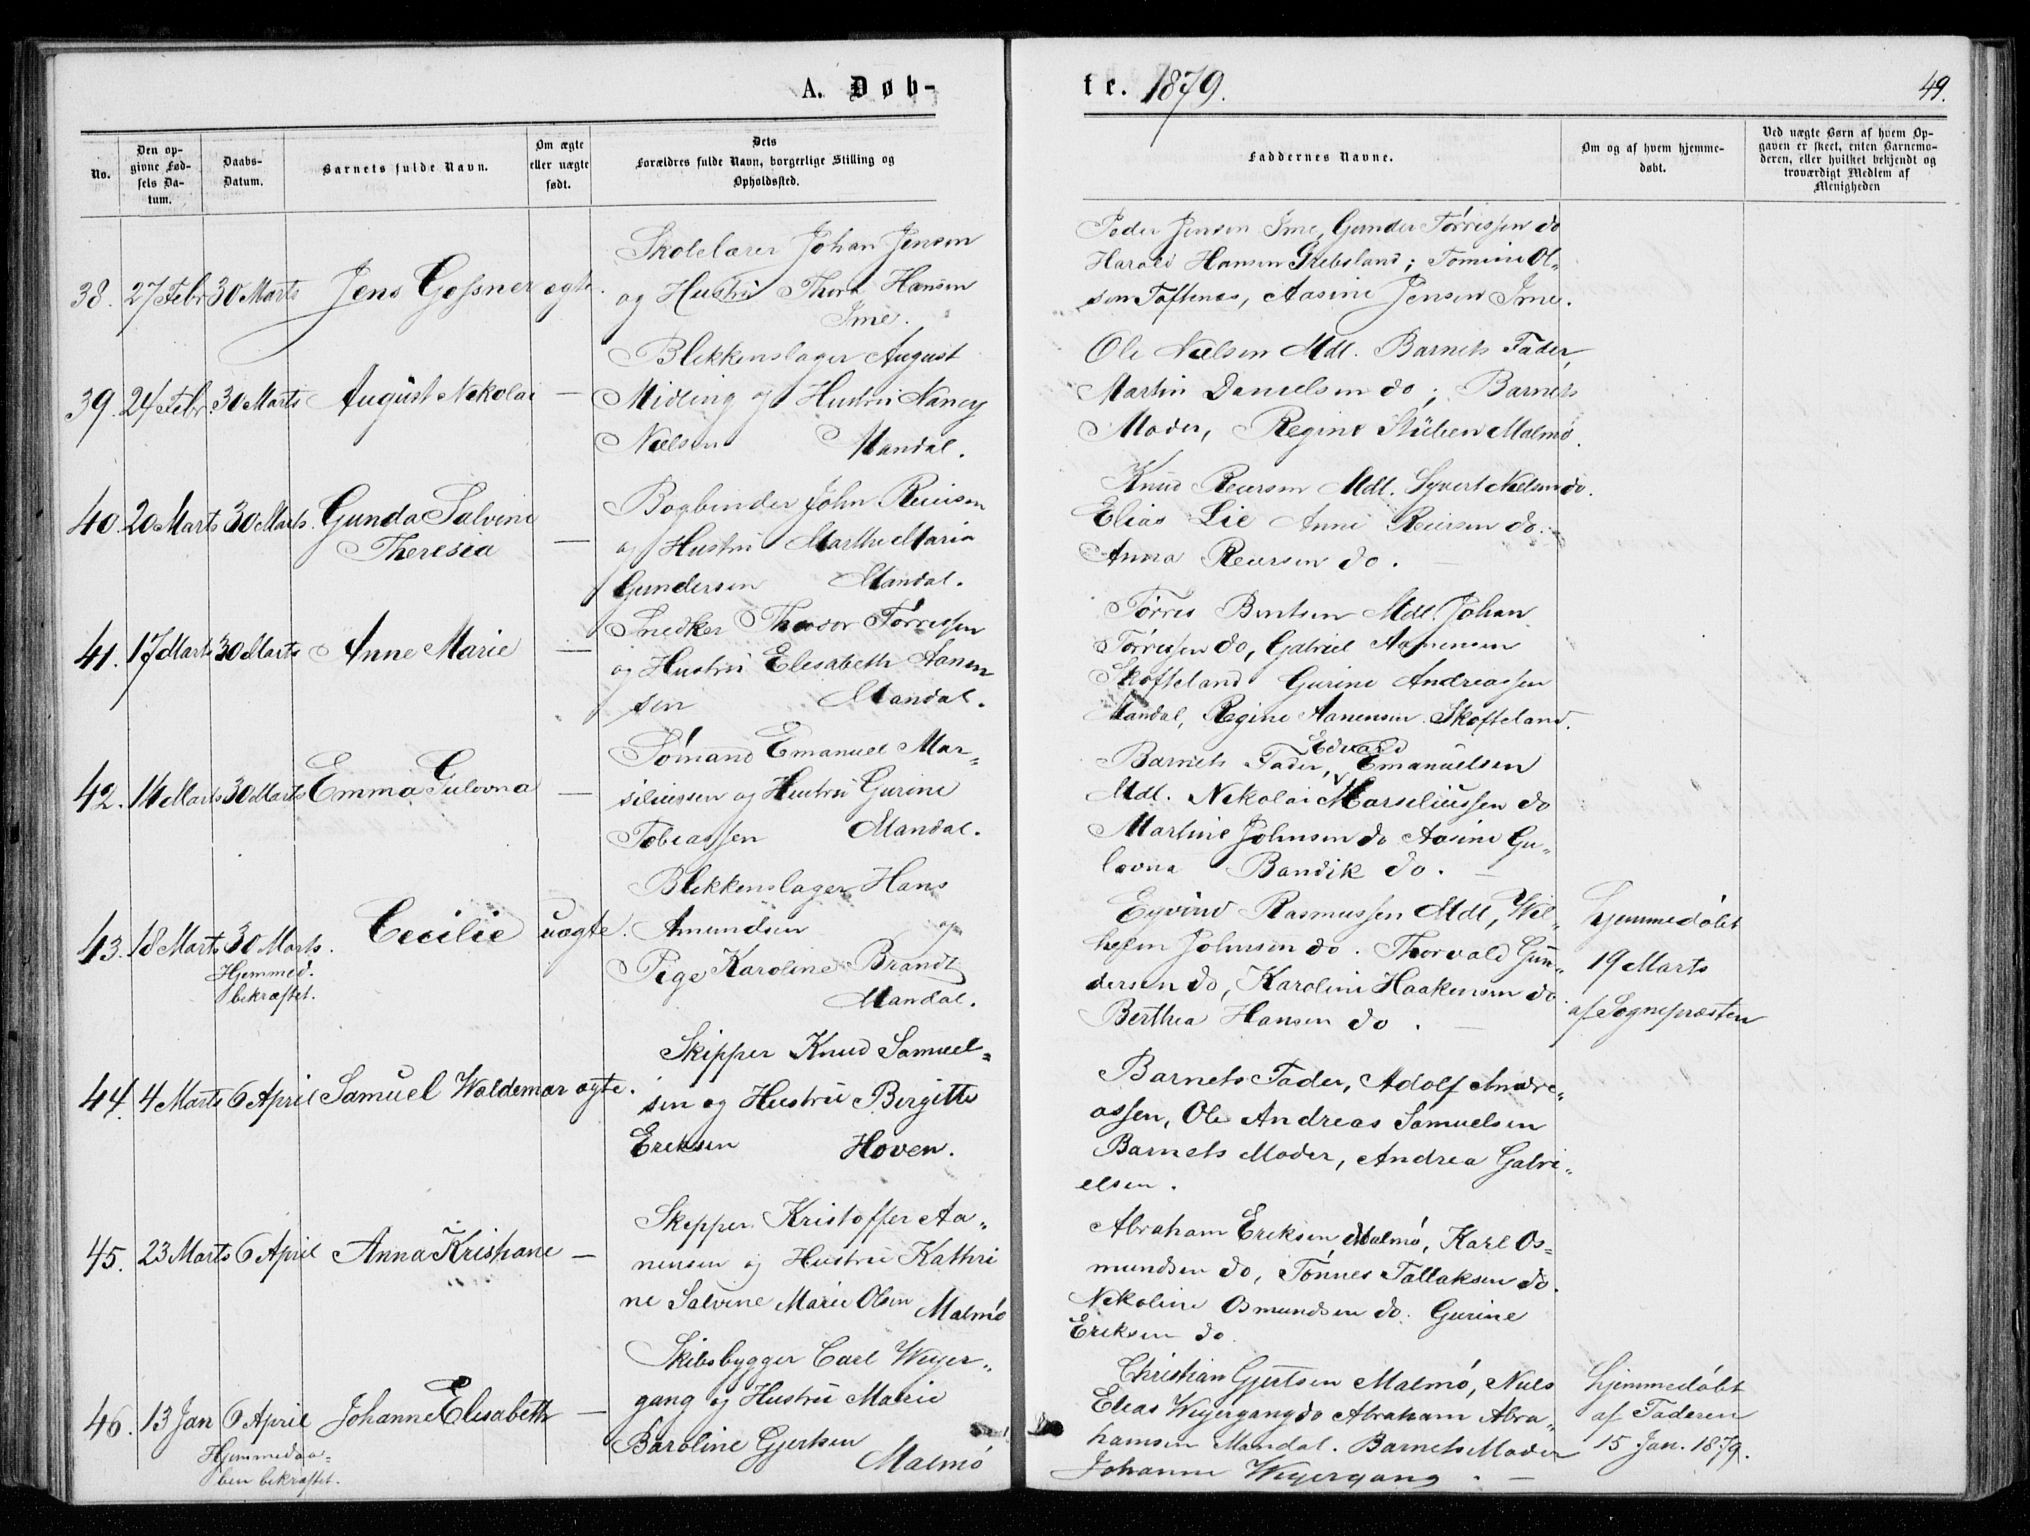 A. Døb-
te. 1879.
49.
No.
Den op-
givne Fød-
sels Da-
tum.
Daabs-
Datum.
Barnets fulde Navn.
Om ægte
eller uægte
født.
Dets
Forældres fulde Navn, borgerlige Stilling og
Opholdssted.
Faddernes Navne.
Om og af hvem hjemme-
døbt.
Ved uægte Børn af hvem Op-
gaven er skeet, enten Barnemo-
deren, eller hvilket bekjendt og
troværdigt Medlem af
Menigheden
38. 27 Febr 30 Marts Jens Gessner ægte.
Skolelærer Johan Jensen
og Hustru Thora Hansen
Ime.
Peder Jensen Ime, Gunder Tørressen do
Harald Hansen Grebsland; Tomine Ol-
sen Toftenes, Aasine Jensen Ime.
39. 24 Febr. 30 Marts August Nekolai —
Blekkenslager August
Midling og Hustru Nancy
Nielsen Mandal.
Ole Nielsen Mdl. Barnets Fader,
Martin Danielsen do; Barnets
Moder, Regine Stüben Malmø.
40. 20 Marts 30 Marts. Gunda Salvine
Theresia —
Bogbinder John Reiersen
og Hustru Marthe Maria
Gundersen Mandal.
Knud Reiersen Mdl. Syvert Nielsen do.
Elias Lie Anne Reiersen do.
Anna Reiersen do.
41. 17 Marts 30 Marts Anne Marie —
Snedker Thor Tørressen
og Hustru Elisabeth Aanen
sen Mandal.
Tørres Bentsen Mdl. Johan
Tørressen do, Gabriel Aanensen
Skofteland Gurine Andreassen
Mandal, Regine Aanensen Skofteland.
42. 14 Marts 30 Marts Emma Gulovna —
Sømand Emanuel Mar-
siliussen og Hustru Gurine
Tobiassen Mandal.
Edvard
Barnets Fader, Emanuelsen
Mdl. Nekolai Marseliussen do
Martine Johnsen do Aasine Gu-
lovna Bandik do. —
43. 18 Marts 30 Marts. Cecilie uægte.
Hjemmed.
bekræftet.
Blekkenslager Hans
Amundsen og
Pige Karoline Brandt
Mandal.
Eyvind Rasmussen Mdl, Wil-
helm Johnsen do. Thorvald Gun-
dersen do, Karoline Haakensen do
Berthea Hansen do. —
hjemmedøbt
19 Marts
af Sognepræsten
44. 4 Marts 6 April Samuel Waldemar ægte.
Skipper Knud Samuel-
sen og Hustru Bergitte
Eriksen Hoven.
Barnets Fader, Adolf Andre-
assen, Ole Andreas Samuelsen
Barnets Moder, Andrea Gabri-
elsen.
45. 23 Marts 6 April Anna Kristiane —
Skipper Kristoffer Aa-
nensen og Hustru Kathri
ne Salvine Marie Olsen Malmø
Abraham Eriksen Malmø, Karl Os-
mundsen do, Tønnes Tallaksen do.
Nekoline Osmundsen do. Gurine
Eriksen do.
46. 13 Jan 6 April Johanne Elisabeth —
Hjemmedaa-
ben bekræftet.
Skibsbygger Carl Weyer-
gang og Hustru Marie
Baroline Gjertsen
Malmø
Christian Gjertsen Malmø, Niels
Elias Weyergang do Abraham Abra-
hamsen Mandal. Barnets Moder
Johanne Weyergang. —
hjemmedøbt
af Faderen
15 Jan. 1879.